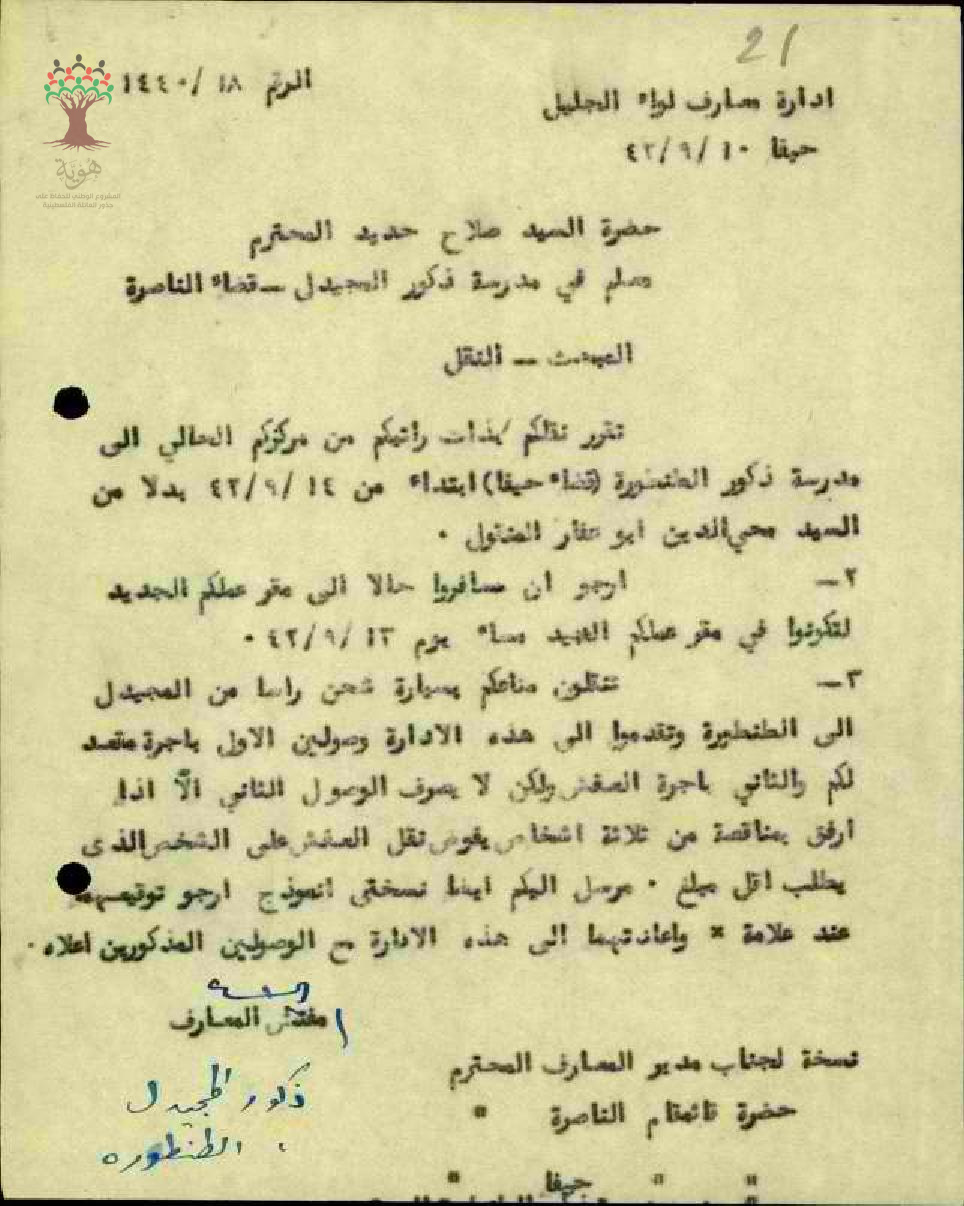 21
الرقم ١٨ /١٤٤٠
ادارة معارف لواء الجليل
حيفا ١٠ /٩/ ٤٢
هوية
المشروع الوطني للحفاظ على
جذور العائلة الفلسطينية
حضرة السيد صلاح حديد المحترم
معلم في مدرسة ذكور المجيدل — قضاء الناصرة
المبحث — النقل
تقرر نقلكم بذات راتبكم من مركزكم الحالي الى
مدرسة ذكور الطنطورة (قضاء حيفا) ابتداء من ١٤ /٩/ ٤٢ بدلا من
السيد محي الدين ابو المنقول .
٢— ارجو ان تسافروا حالا الى مقر عملكم الجديد
لتكونوا في مقر عملكم مساء يوم ١٣ /٩/ ٤٢ .
٣— تنقلون متاعكم بسيارة شحن راسا من المجيدل
الى الطنطيرة وتقدموا الى هذه الادارة وصولين الاول باجرة مقعد
لكم والثاني باجرة العفش ولكن لا يصرف الوصول الثاني الّا اذا
ارفق بمناقصة من ثلاثة اشخاص يفوض نقل العفش على الشخص الذى
يطلب اقل مبلغ . مرسل اليكم ايضا نسختى انموذج ارجو توقيعهما
عند علامة × واعادتهما الى هذه الادارة مع الوصولين المذكورين اعلاه .
مفتش المعارف
نسخة لجناب مدير المعارف المحترم
حضرة قائمقام الناصرة "
ذكور المجيدل
الطنطوره
" " حيفا "